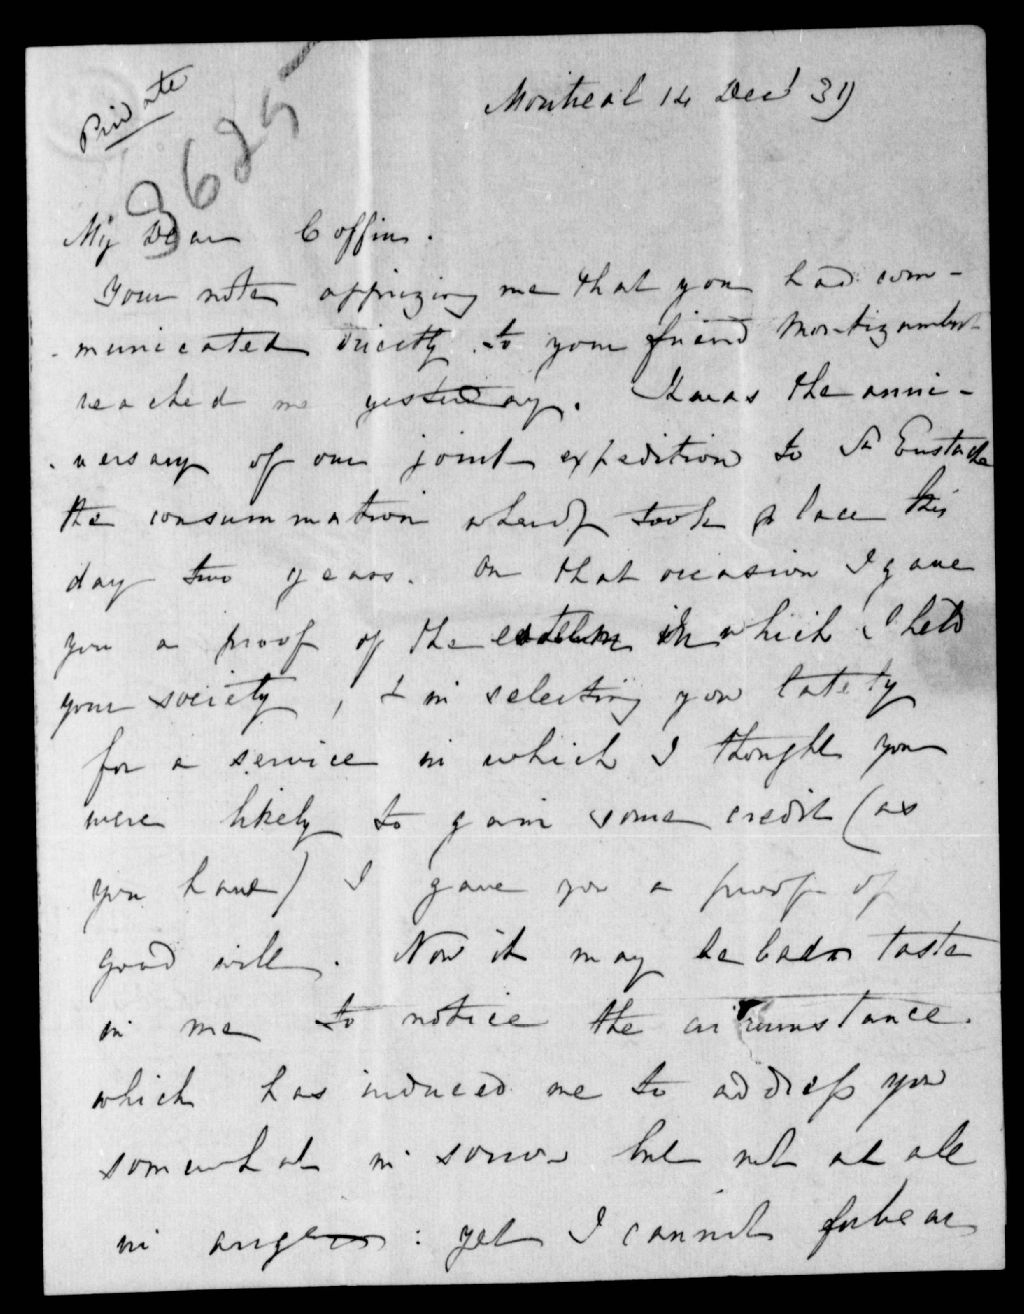 Private
3625
Montreal 14 Decr 39
My Dear Coffin.
Your note apprizing me that you had com-
municated directly to your friend Montizambert
reached me yesterday. It was the anni-
versary of our joint expedition to St Eustache
the consummation whereof took place this
day two years. On that occasion I gave
you a proof of the esteem in which I held
your society, & in selecting you lately
for a service in which I thought you
were likely to gain some credit (as
you have) I gave you a proof of
good will. Now it may be bad taste
in me to notice the circumstance.
which has induced me to address you
somewhat in sorrow but not at all
in anger : yet I cannot forbear